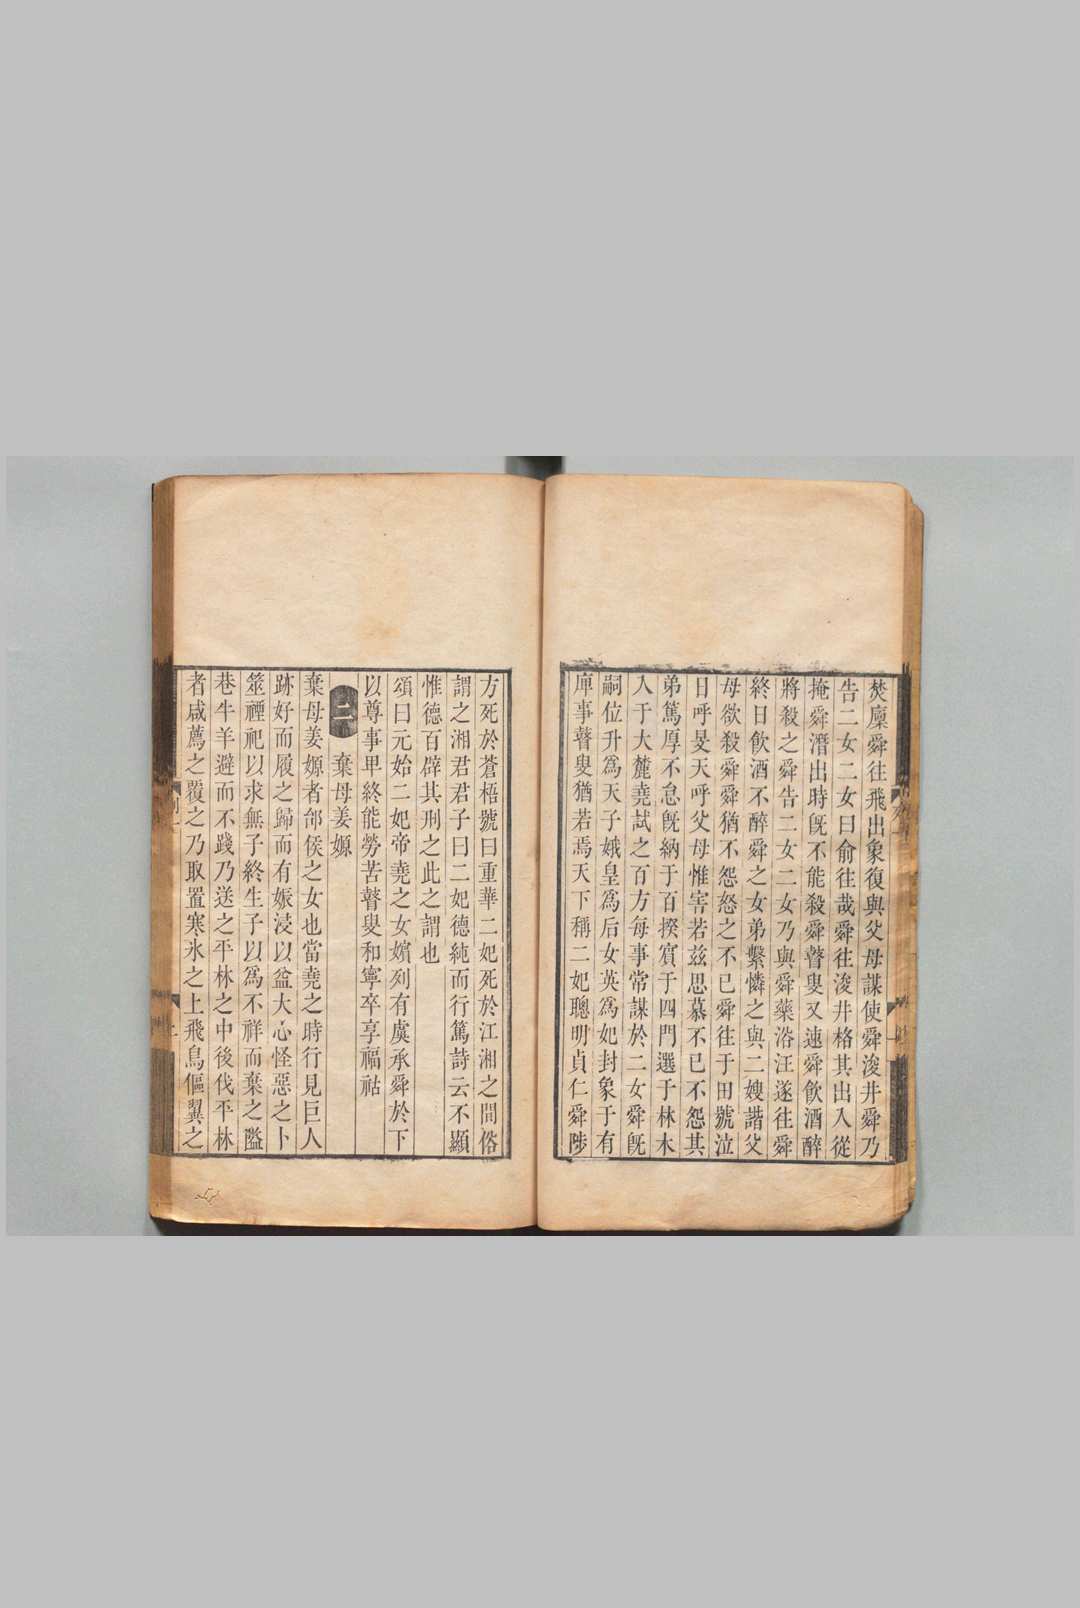 焚廩舜往飛出象復與父母謀使舜浚井舜乃
告二女二女曰俞往哉舜往浚井格其出入從
掩舜潛出時旣不能殺舜瞽叟又速舜飲酒醉
將殺之舜告二女二女乃與舜藥浴汪遂往舜
終日飲酒不醉舜之女弟繫憐之與二嫂諧父
母欲殺舜舜猶不怨怒之不已舜往于田號泣
日呼旻天呼父母惟害若茲思慕不已不怨其
弟篤厚不怠旣納于百揆賓于四門選于林木
入于大麓堯試之百方每事常謀於二女舜旣
嗣位升爲天子娥皇爲后女英爲妃封象于有
庳事瞽叟猶若焉天下稱二妃聰明貞仁舜陟
方死於蒼梧號曰重華二妃死於江湘之間俗
謂之湘君君子曰二妃德純而行篤詩云不顯
惟德百辟其刑之此之謂也
頌曰元始二妃帝堯之女嬪列有虞承舜於下
以尊事卑終能勞苦瞽叟和寧卒享福祜
二 棄母姜嫄
棄母姜嫄者邰侯之女也當堯之時行見巨人
跡好而履之歸而有娠浸以益大心怪惡之卜
筮禋祀以求無子終生子以爲不祥而棄之隘
巷牛羊避而不踐乃送之平林之中後伐平林
者咸薦之覆之乃取置寒氷之上飛鳥傴翼之